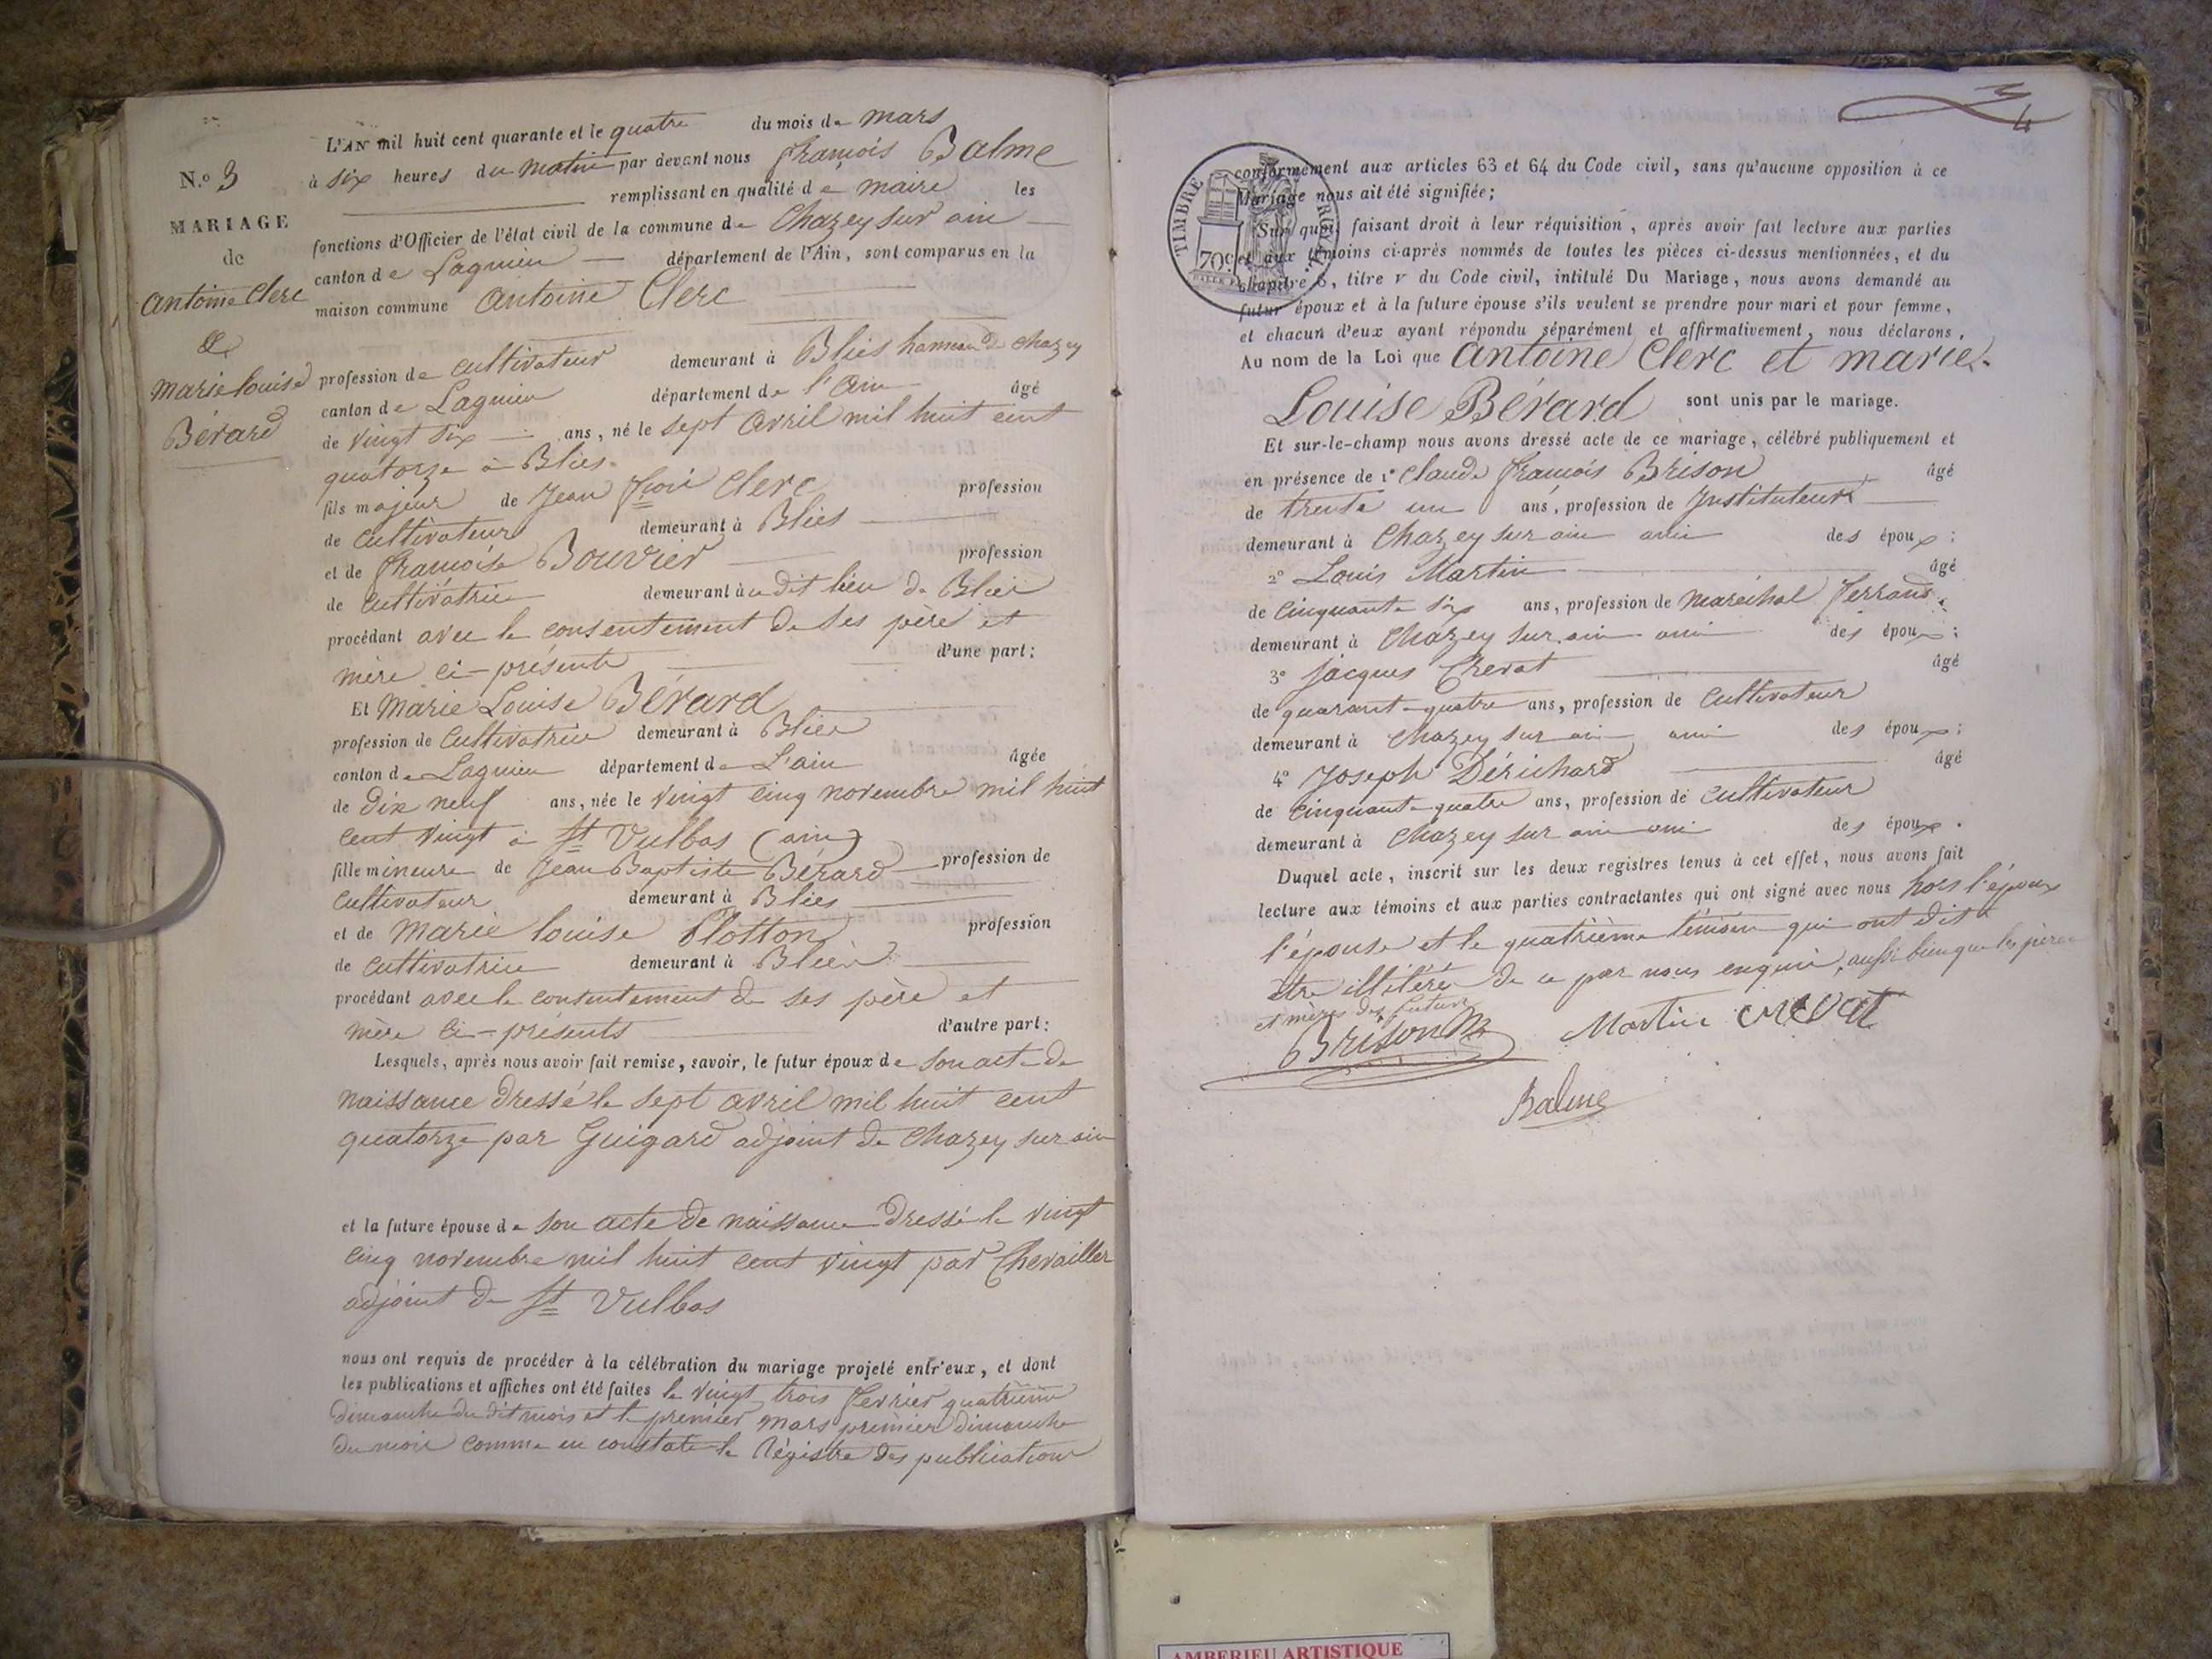 N.º 3
MARIAGE
de
Antoine Clerc
&
Marie Louise
Bérard
L'AN mil huit cent quarante et le quatre du mois de mars
à six heures du matin par devant nous François Balme
remplissant en qualité de maire les
fonctions d'Officier de l'état civil de la commune de Chazey sur ain
canton de Lagnieu département de l'Ain, sont comparus en la
maison commune Antoine Clerc
profession de cultivateur demeurant à Blies hameau de chazey
canton de Lagnieu département de l'Ain âgé
de vingt six ans, né le sept avril mil huit cent
quatorze à Blies
fils majeur de Jean fçois Clerc profession
de cultivateur demeurant à Blies
et de françoise Bouvier profession
de cultivatrice demeurant au dit lieu de Blies
procédant avec le consentement de ses père et
mère ci-présents d'une part;
Et Marie Louise Bérard
profession de cultivatrice demeurant à Blies
canton de Lagnieu département de L'ain âgée
de dix neuf ans, née le vingt cinq novembre mil huit
cent vingt à St Vulbas (ain)
fille mineure de Jean Baptiste Bérard profession de
cultivateur demeurant à Blies
et de Marie louise Plotton profession
de cultivatrice demeurant à Blies
procédant avec le consentement de ses père et
mère ci-présents d'autre part:
Lesquels, après nous avoir fait remise, savoir, le futur époux de son acte de
naissance dressé le sept avril mil huit cent
quatorze par Guigard adjoint de Chazey sur ain
et la future épouse de son acte de naissance dressé le vingt
cinq novembre mil huit cent vingt par Chevailler
adjoint de St Vulbas
nous ont requis de procéder à la célébration du mariage projeté entr'eux, et dont
les publications et affiches ont été faites le vingt trois fevrier quatrième
dimanche du dit mois et le premier mars premier dimanche
du mois comme en constate le régistre des publications
4
TIMBRE ROYAL
70c
conformément aux articles 63 et 64 du Code civil, sans qu'aucune opposition à ce
Mariage nous ait été signifiée;
Sur quoi, faisant droit à leur réquisition, après avoir fait lecture aux parties
et aux témoins ci-après nommés de toutes les pièces ci-dessus mentionnées, et du
chapitre 6, titre v du Code civil, intitulé Du Mariage, nous avons demandé au
futur époux et à la future épouse s'ils veulent se prendre pour mari et pour femme,
et chacun d'eux ayant répondu séparément et affirmativement, nous déclarons,
Au nom de la Loi que Antoine Clerc et marie
Louise Bérard sont unis par le mariage.
Et sur-le-champ nous avons dressé acte de ce mariage, célébré publiquement et
en présence de 1º Claude François Brison âgé
de trente un ans, profession de Instituteur
demeurant à Chazey sur ain ami des époux;
2º Louis Martin âgé
de cinquante six ans, profession de maréchal ferrand
demeurant à Chazey sur ain ami des époux;
3º Jacques Crevat âgé
de quarante quatre ans, profession de cultivateur
demeurant à Chazey sur ain ami des époux;
4º Joseph Dérichard âgé
de cinquante quatre ans, profession de cultivateur
demeurant à Chazey sur ain ami des époux.
Duquel acte, inscrit sur les deux registres tenus à cet effet, nous avons fait
lecture aux témoins et aux parties contractantes qui ont signé avec nous hors l'époux
l'épouse et le quatrième témoin qui ont dit
être illitéré de ce par nous enquis, aussi bien que les pères
et mères des futurs
Brison Martin crevat
Balme
AMBERIEU ARTISTIQUE